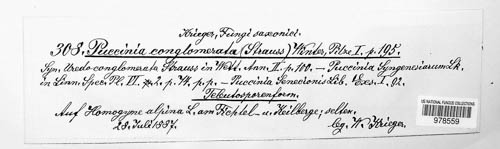 Krieger, Fungi saxonici.
308. Puccinia conglomerata (Strauss) Winter, Pilze I. p. 195.
Syn. Uredo conglomerata Strauss in Wett. Ann. II. p. 100. — Puccinia Syngenesiarum Lk.
in Linn. Spec. Pl. VI. 2. p. 74. p. p. — Puccinia Senecionis Lib. Exs. I. 92.
Teleutosporenform.
Auf Homogyne alpina L. am Fichtel- u. Keilberge; selten.
28. Juli 1887. leg. W. Krieger.
US NATIONAL FUNGUS COLLECTIONS
978559